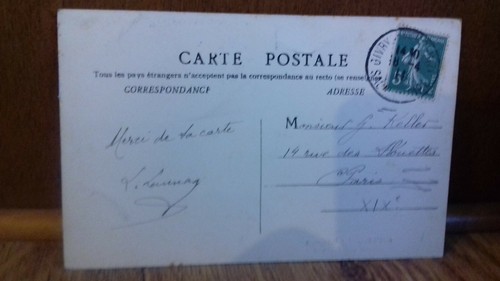 CARTE POSTALE
Tous les pays étrangers n'acceptent pas la correspondance au recto (se renseigner
CORRESPONDANCE
ADRESSE
Merci de la carte
Monsieur G. Keller
14 rue des
Paris
XIXe